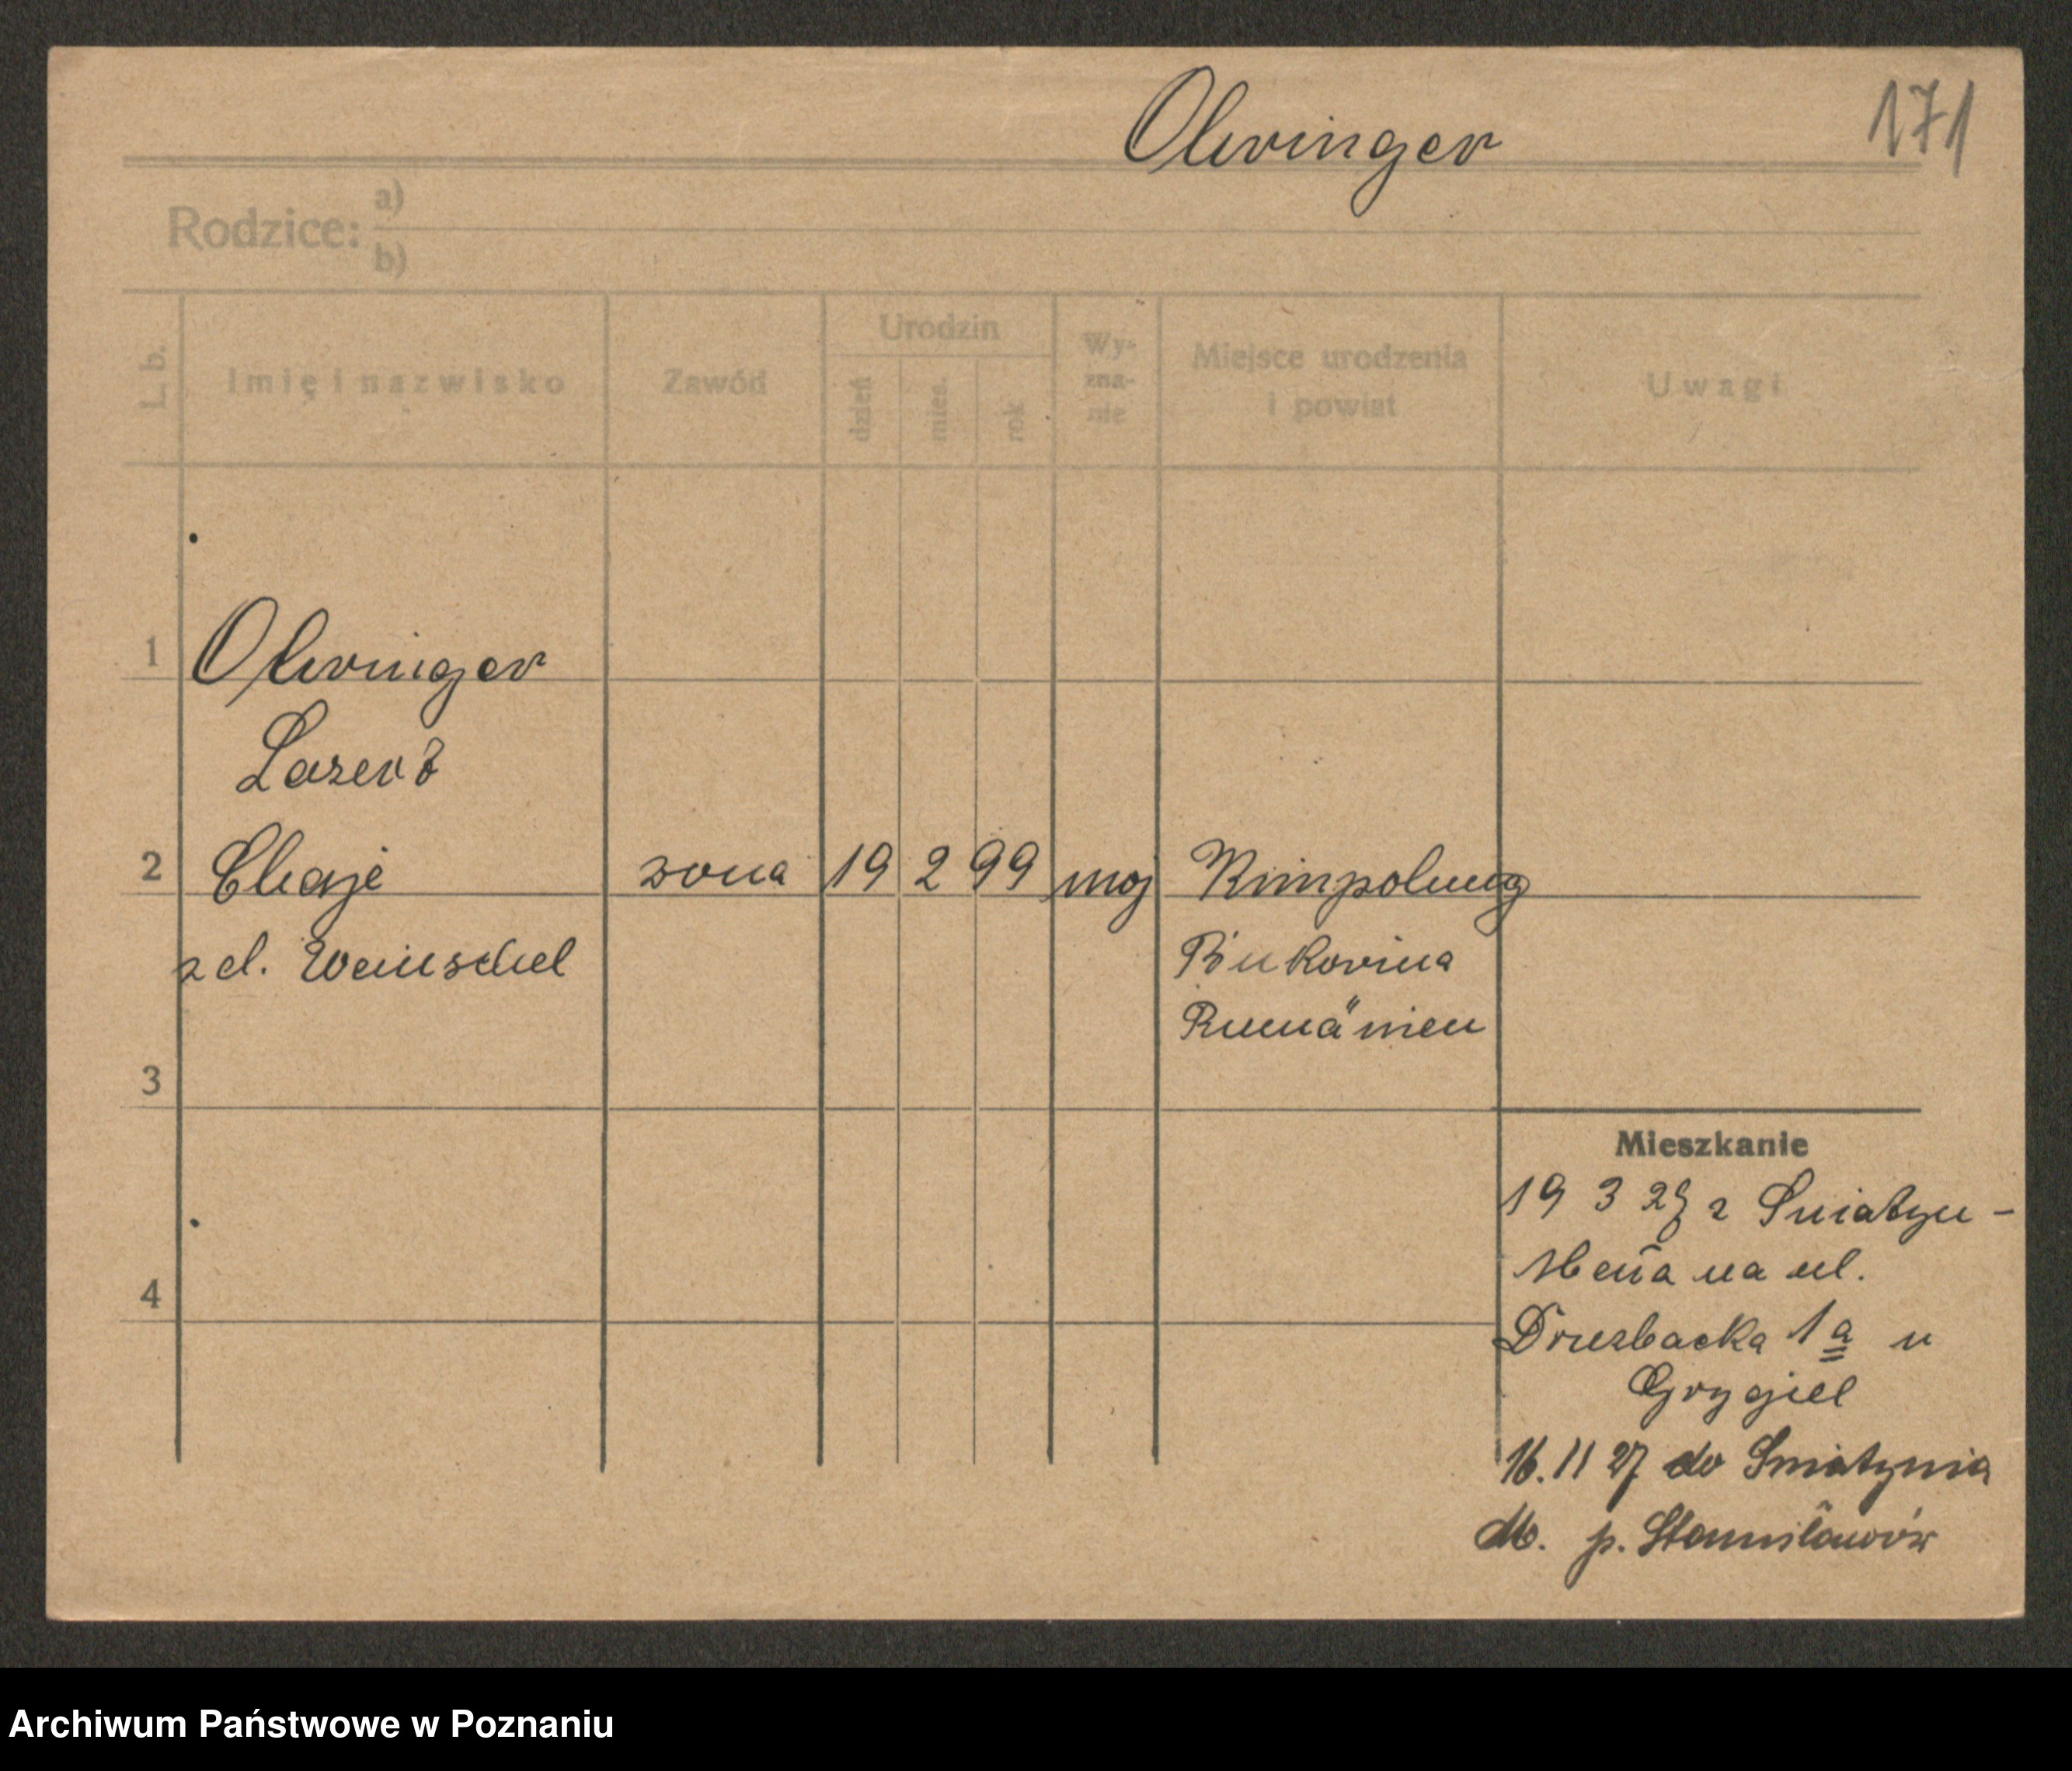 Ohringer 171
Rodzice: a)
b)
L. b. Imię i nazwisko Zawód Urodzin dzień mies. rok Wy-zna-nie Miejsce urodzenia i powiat Uwagi
1 Ohringer
Lazer
2 Chaje zona 19 2 99 moj Kimpolung
zd. Weinschel Bukovina
Rumänien
3
Mieszkanie
19 3 z Sniatyn-
na ul.
4
Druzbacka 1a u
Grygiel
16.11 27 do Sniatynia
p. Stanisławów
Archiwum Państwowe w Poznaniu